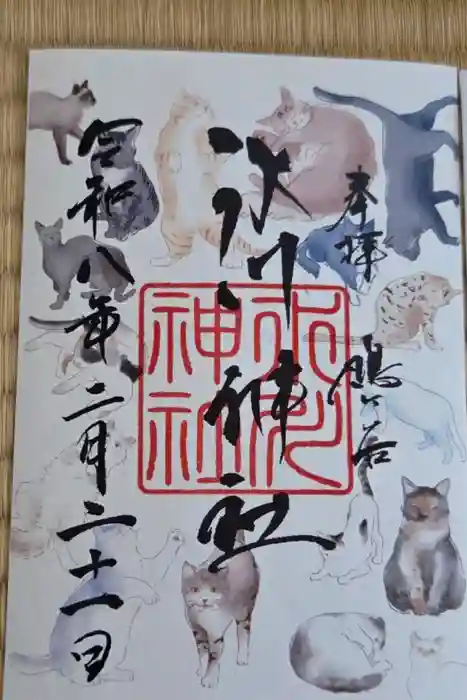 奉拝
鳩ヶ谷
氷川神社
氷川
神社
令和八年二月二十一日